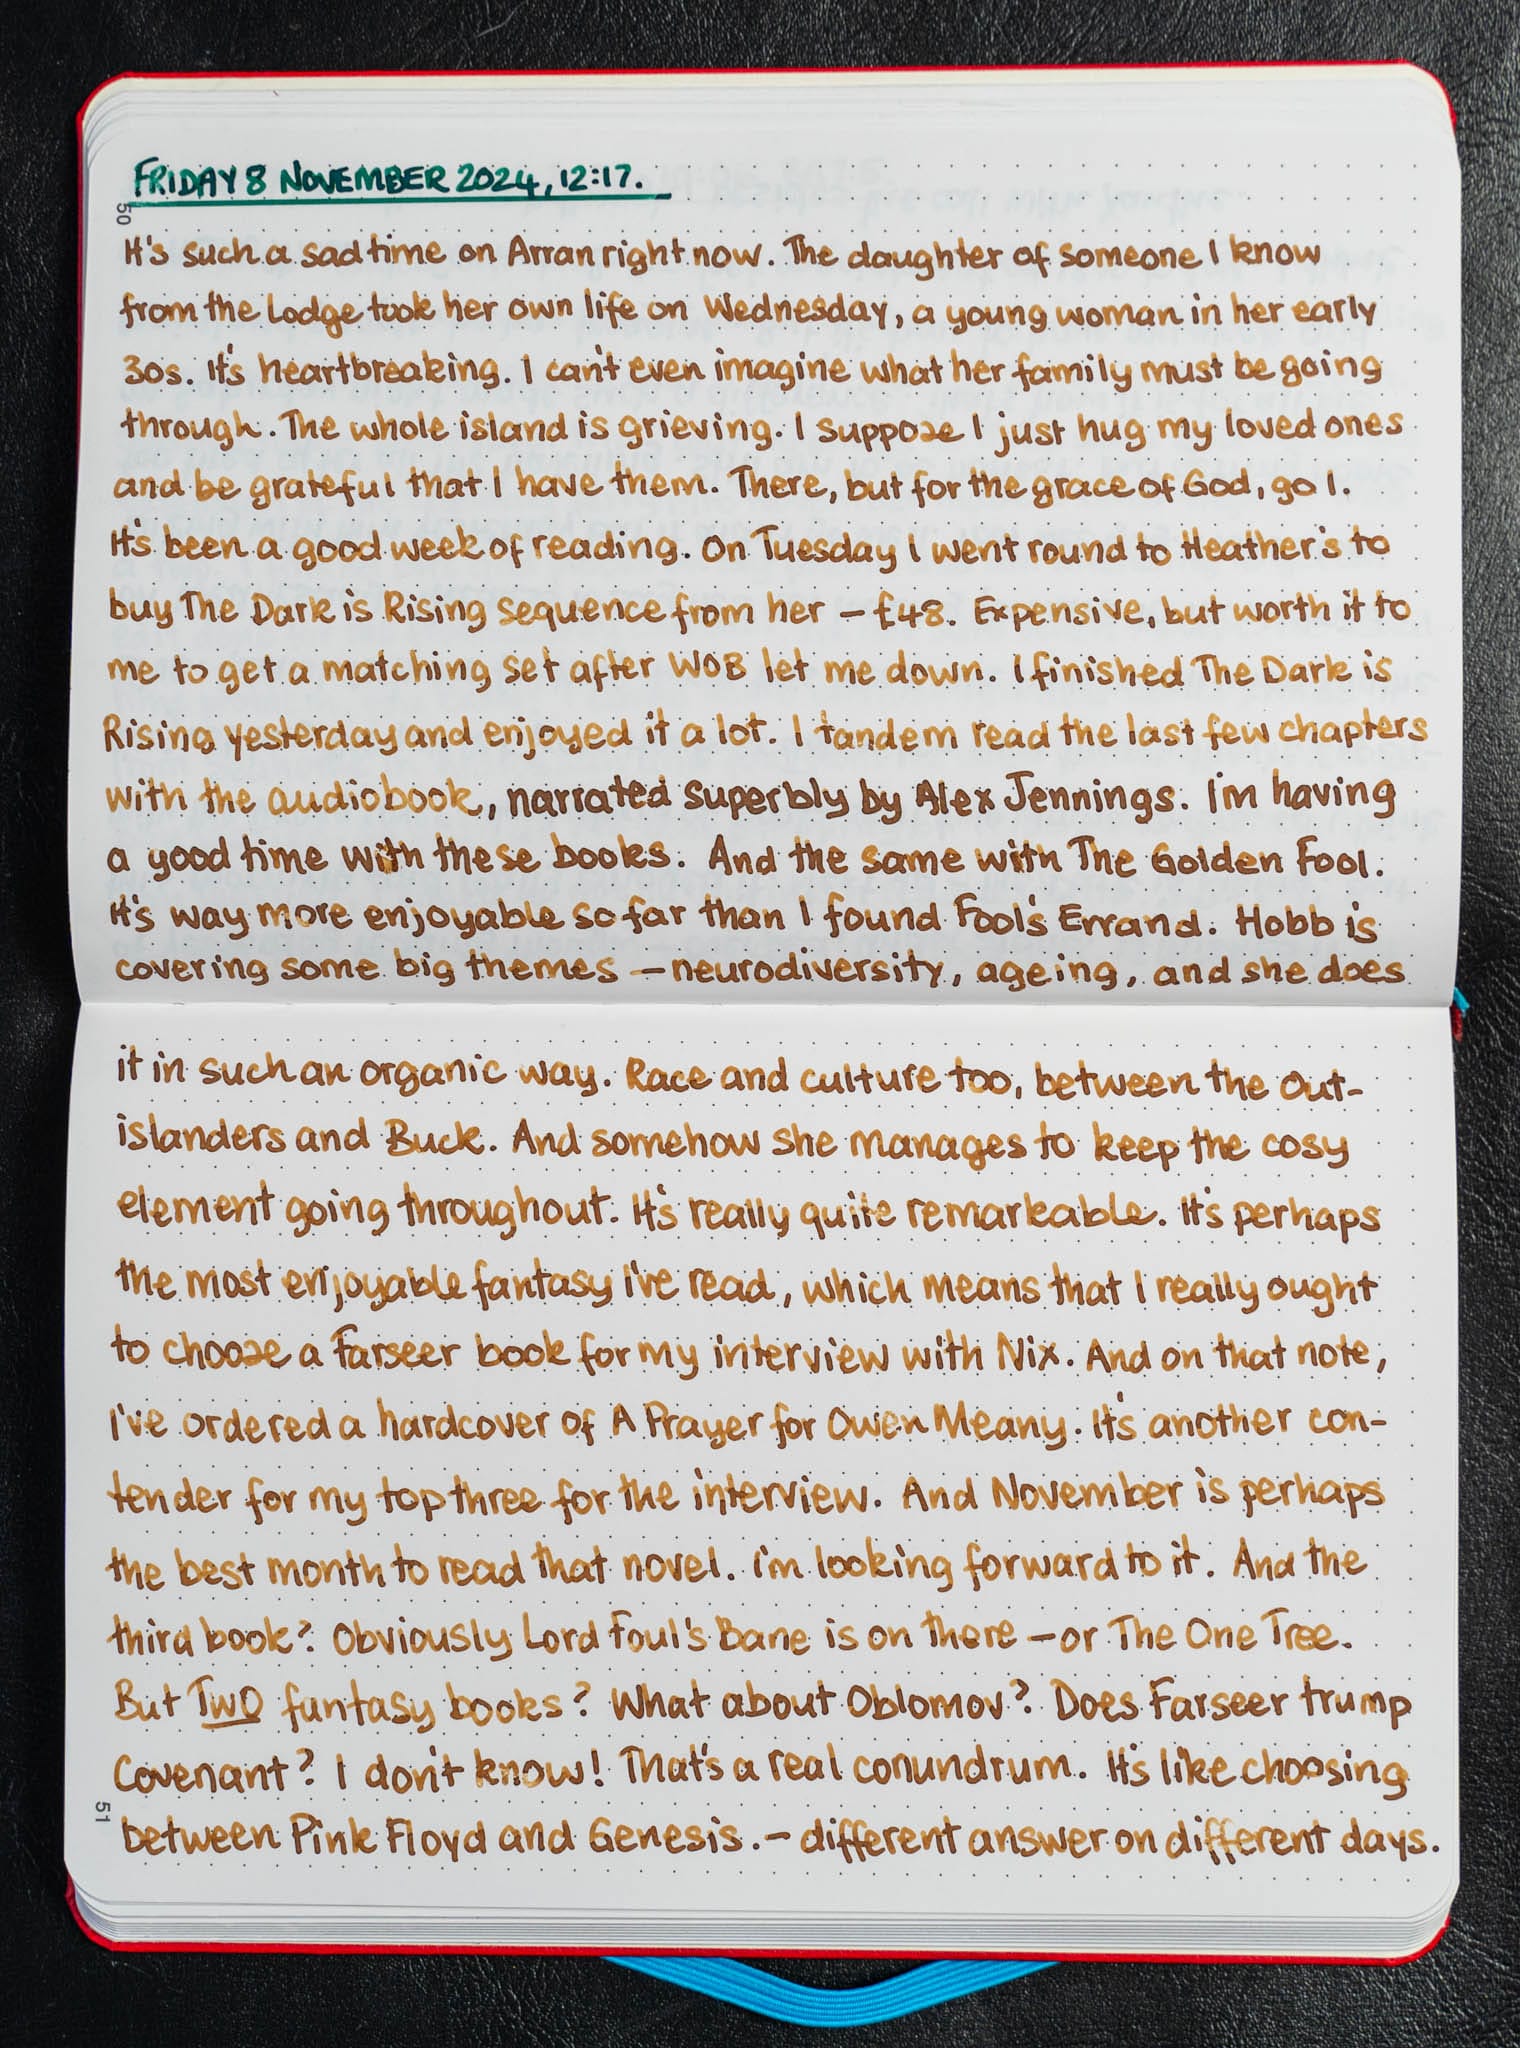 FRIDAY 8 NOVEMBER 2024, 12:17.
50
It's such a sad time on Arran right now. The daughter of someone I know
from the Lodge took her own life on Wednesday, a young woman in her early
30s. It's heartbreaking. I can't even imagine what her family must be going
through. The whole island is grieving. I suppose I just hug my loved ones
and be grateful that I have them. There, but for the grace of God, go I.
It's been a good week of reading. On Tuesday I went round to Heather's to
buy The Dark is Rising sequence from her – £48. Expensive, but worth it to
me to get a matching set after WOB let me down. I finished The Dark is
Rising yesterday and enjoyed it a lot. I tandem read the last few chapters
with the audiobook, narrated superbly by Alex Jennings. I'm having
a good time with these books. And the same with The Golden Fool.
It's way more enjoyable so far than I found Fool's Errand. Hobb is
covering some big themes – neurodiversity, ageing, and she does
it in such an organic way. Race and culture too, between the Out-
islanders and Buck. And somehow she manages to keep the cosy
element going throughout. It's really quite remarkable. It's perhaps
the most enjoyable fantasy I've read, which means that I really ought
to choose a Farseer book for my interview with Nix. And on that note,
I've ordered a hardcover of A Prayer for Owen Meany. It's another con-
tender for my top three for the interview. And November is perhaps
the best month to read that novel. I'm looking forward to it. And the
third book? Obviously Lord Foul's Bane is on there – or The One Tree.
But TWO fantasy books? What about Oblomov? Does Farseer trump
Covenant? I don't know! That's a real conundrum. It's like choosing
between Pink Floyd and Genesis. – different answer on different days.
51